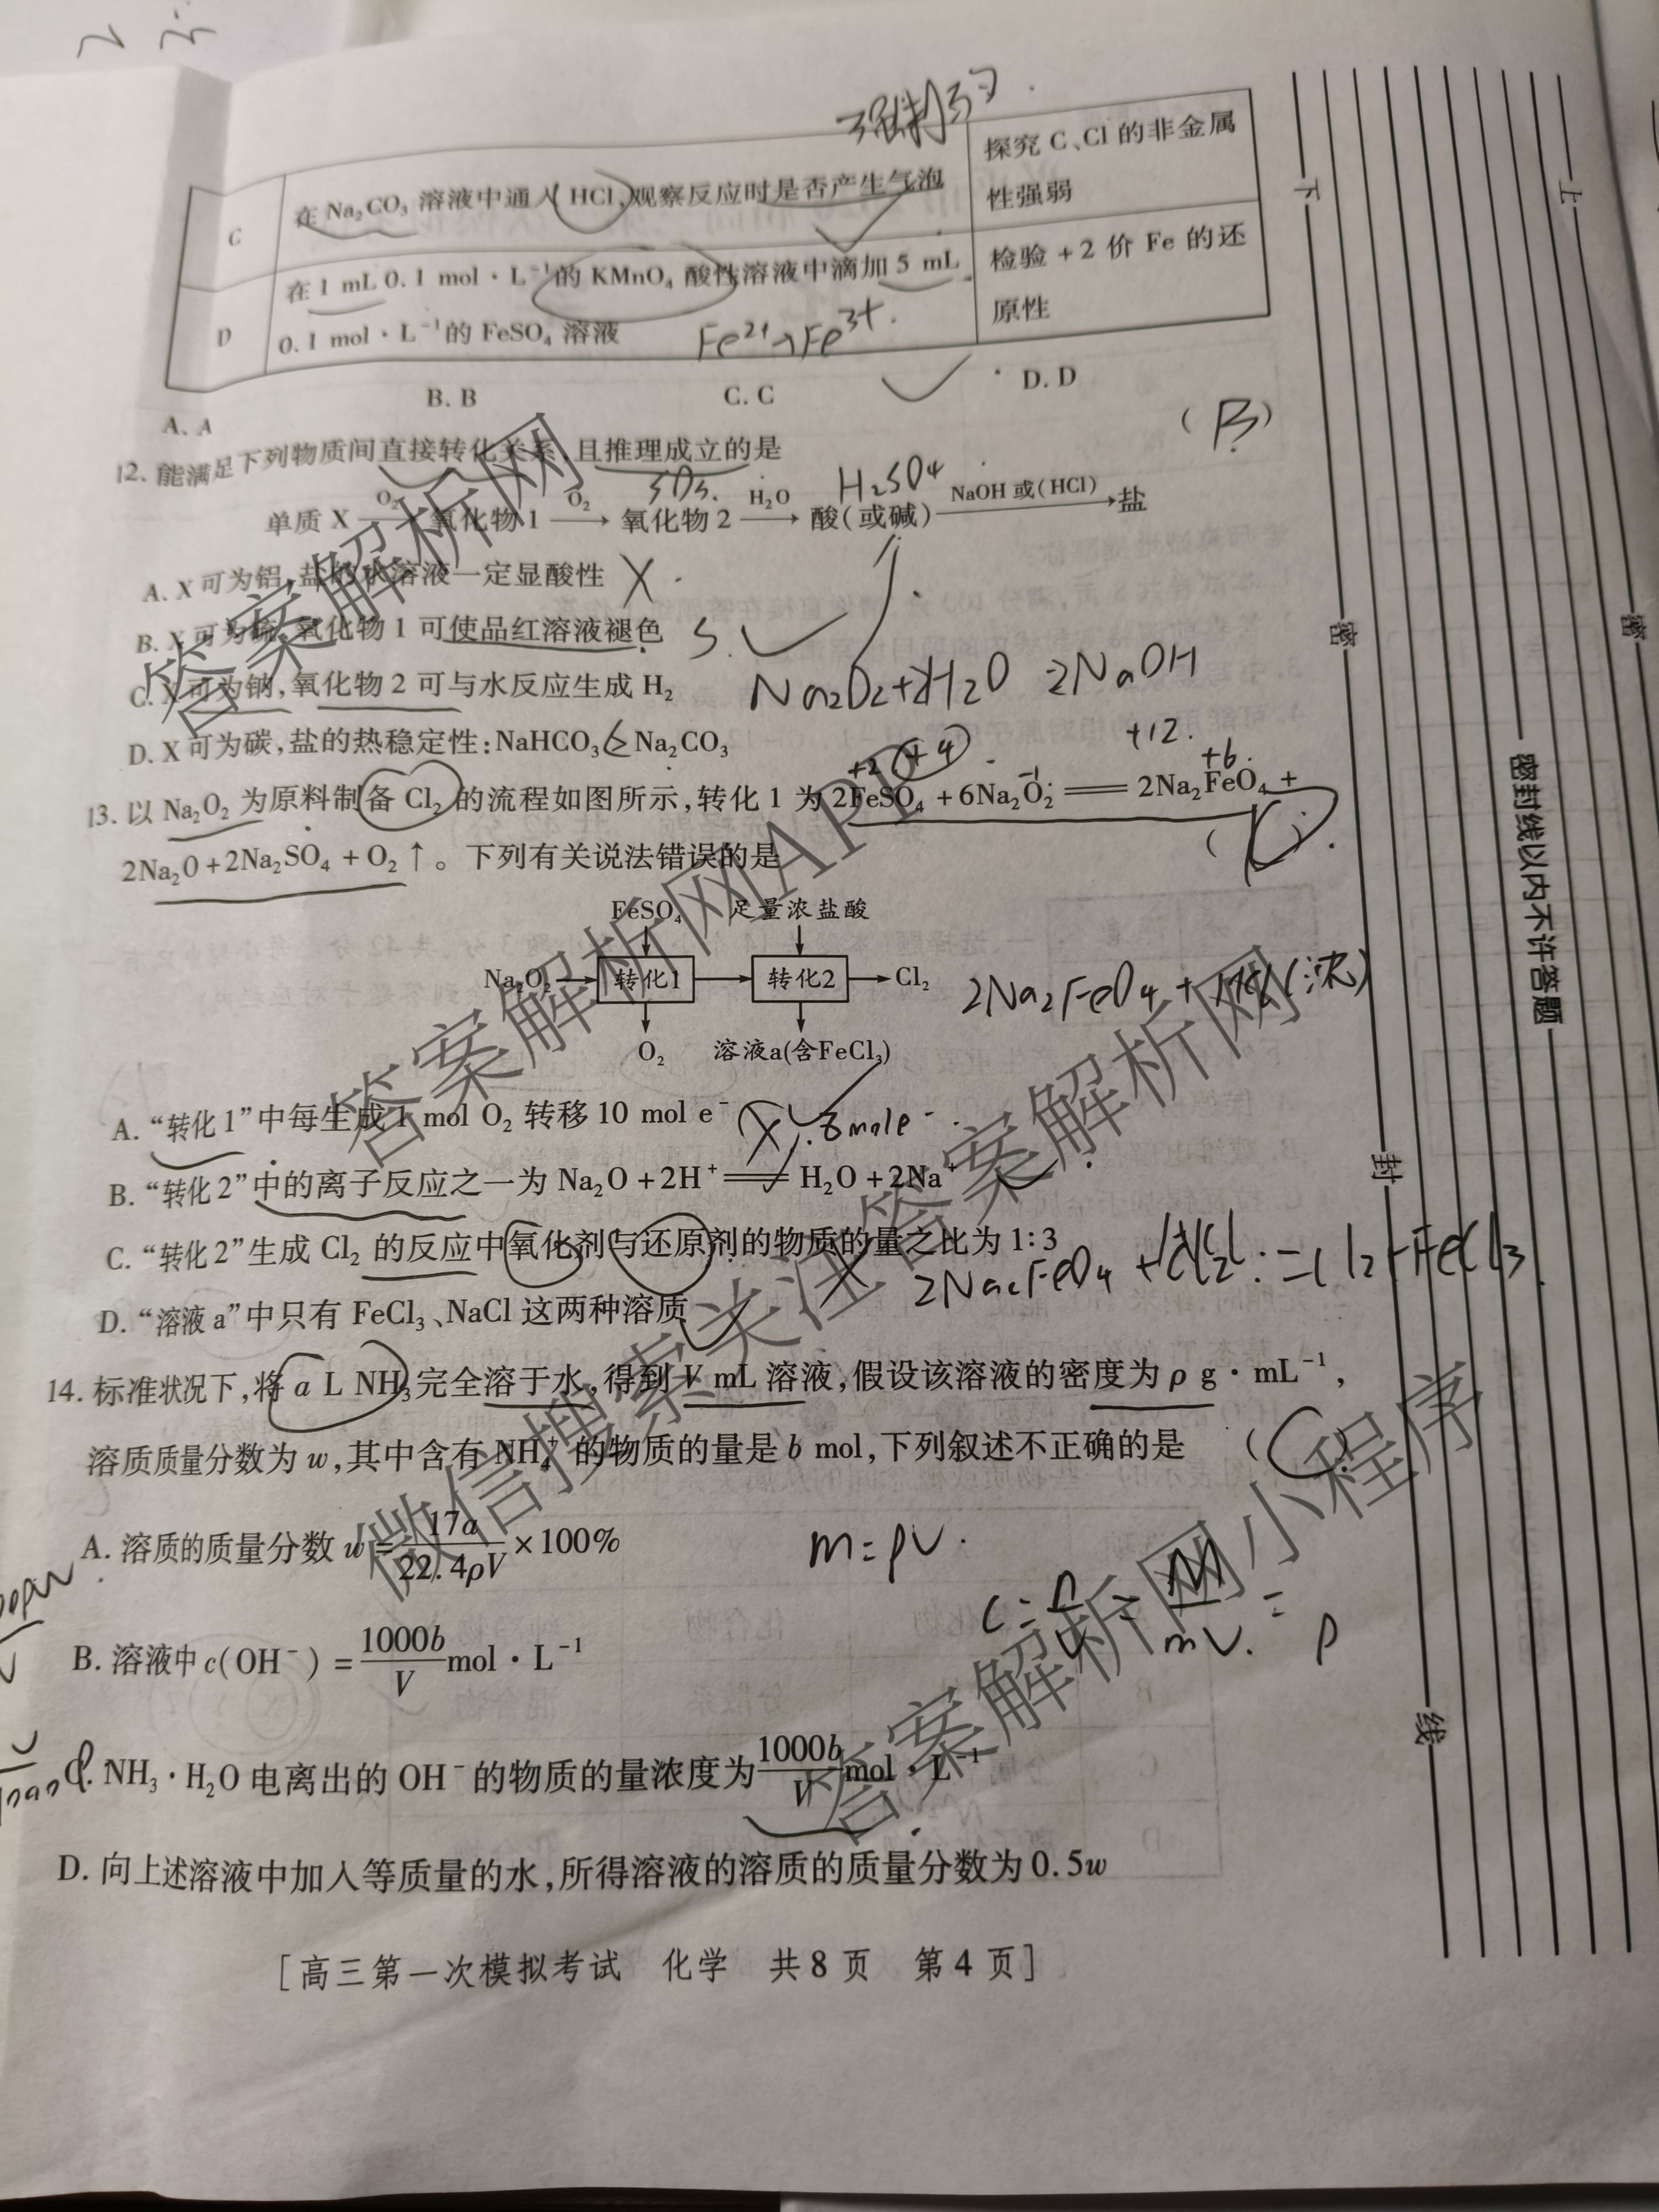 强制弱
C 在 Na₂CO₃ 溶液中通入 HCl,观察反应时是否产生气泡 探究 C、Cl 的非金属
性强弱
D 在 1 mL 0.1 mol · L⁻¹的 KMnO₄ 酸性溶液中滴加 5 mL 检验 +2 价 Fe 的还
0.1 mol · L⁻¹的 FeSO₄ 溶液 原性
Fe²⁺→Fe³⁺
A. A B. B C. C D. D
12. 能满足下列物质间直接转化关系,且推理成立的是 ( B )
SO₃ H₂SO₄
单质 X —O₂→ 氧化物 1 —O₂→ 氧化物 2 —H₂O→ 酸(或碱) —NaOH 或(HCl)→ 盐
A. X 可为铝,盐的水溶液一定显酸性 X
B. X 可为硫,氧化物 1 可使品红溶液褪色 S
C. X 可为钠,氧化物 2 可与水反应生成 H₂
Na₂O₂+H₂O 2NaOH
D. X 可为碳,盐的热稳定性:NaHCO₃>Na₂CO₃
+2 +4 -1 +12 +6
13. 以 Na₂O₂ 为原料制备 Cl₂ 的流程如图所示,转化 1 为 2FeSO₄ +6Na₂O₂══2Na₂FeO₄ +
2Na₂O+2Na₂SO₄ + O₂ ↑ 。下列有关说法错误的是 ( C )
FeSO₄ 足量浓盐酸
Na₂O₂ 转化1 转化2 Cl₂
O₂ 溶液a(含FeCl₃)
2Na₂FeO₄ + HCl(浓)
A. “转化 1”中每生成 1 mol O₂ 转移 10 mol e⁻ X 8mole⁻
B. “转化 2”中的离子反应之一为 Na₂O +2H⁺══H₂O +2Na⁺
C. “转化 2”生成 Cl₂ 的反应中氧化剂与还原剂的物质的量之比为 1∶3 X
D. “溶液 a”中只有 FeCl₃、NaCl 这两种溶质
14. 标准状况下,将 a L NH₃ 完全溶于水,得到 V mL 溶液,假设该溶液的密度为 ρ g · mL⁻¹,
溶质质量分数为 w,其中含有 NH₄⁺ 的物质的量是 b mol,下列叙述不正确的是 ( C )
A. 溶质的质量分数 w = 17a/22.4ρV ×100%
m=ρV
B. 溶液中 c(OH⁻) = 1000b/V mol · L⁻¹
C. NH₃ · H₂O 电离出的 OH⁻ 的物质的量浓度为 1000b/V mol · L⁻¹
D. 向上述溶液中加入等质量的水,所得溶液的溶质的质量分数为 0.5w
[高三第一次模拟考试 化学 共 8 页 第 4 页]
上
下
密
密
封
线
密封线以内不许答题
答案解析网
答案解析网APP
微信搜索关注答案解析网
答案解析网小程序